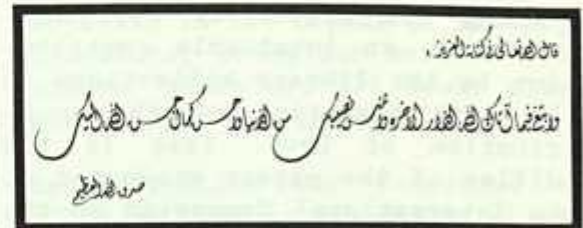 قال الله تعالى في كتابه العزيز:
وابتغ فيما آتاك الله الدار الآخرة ولا تنس نصيبك من الدنيا وأحسن كما أحسن الله إليك
صدق الله العظيم